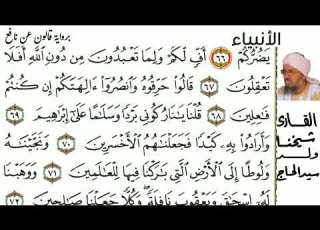 الأنبياء
برواية قالون عن نافع
يَضُرُّكُمْ ٦٦ أُفٍّ لَّكُمْ وَلِمَا تَعْبُدُونَ مِن دُونِ اِ۬للَّهِ أَفَلَا
تَعْقِلُونَ ٦٧ قَالُواْ حَرِّقُوهُ وَانصُرُواْ ءَالِهَتَكُمْ إِن كُنتُمْ
فَٰعِلِينَ ٦٨ قُلْنَا يَٰنَارُ كُونِي بَرْدًا وَسَلَٰمًا عَلَىٰ إِبْرَٰهِيمَ ٦٩
وَأَرَادُواْ بِهِۦ كَيْدًا فَجَعَلْنَٰهُمُ الْأَخْسَرِينَ ٧٠ وَنَجَّيْنَٰهُ
وَلُوطًا إِلَى الْأَرْضِ الَّتِي بَٰرَكْنَا فِيهَا لِلْعَٰلَمِينَ ٧١ وَوَهَبْنَا
لَهُۥ إِسْحَٰقَ وَيَعْقُوبَ نَافِلَةً وَكُلًّا جَعَلْنَا صَٰلِحِينَ ٧٢
القارئ
شيخنا
ولد
سيد الحاج